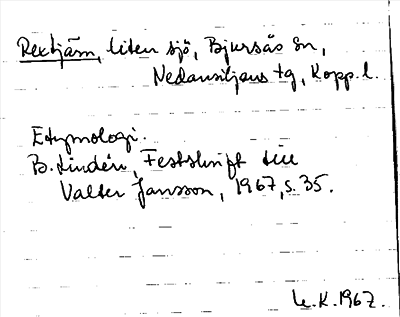 Rextjärn, liten sjö, Bjursås sn,
Nedansiljans tg, Kopp. l.
Etymologi.
B. Lindén, Festskrift till
Valter Jansson, 1967, s. 35.
K. 1967.